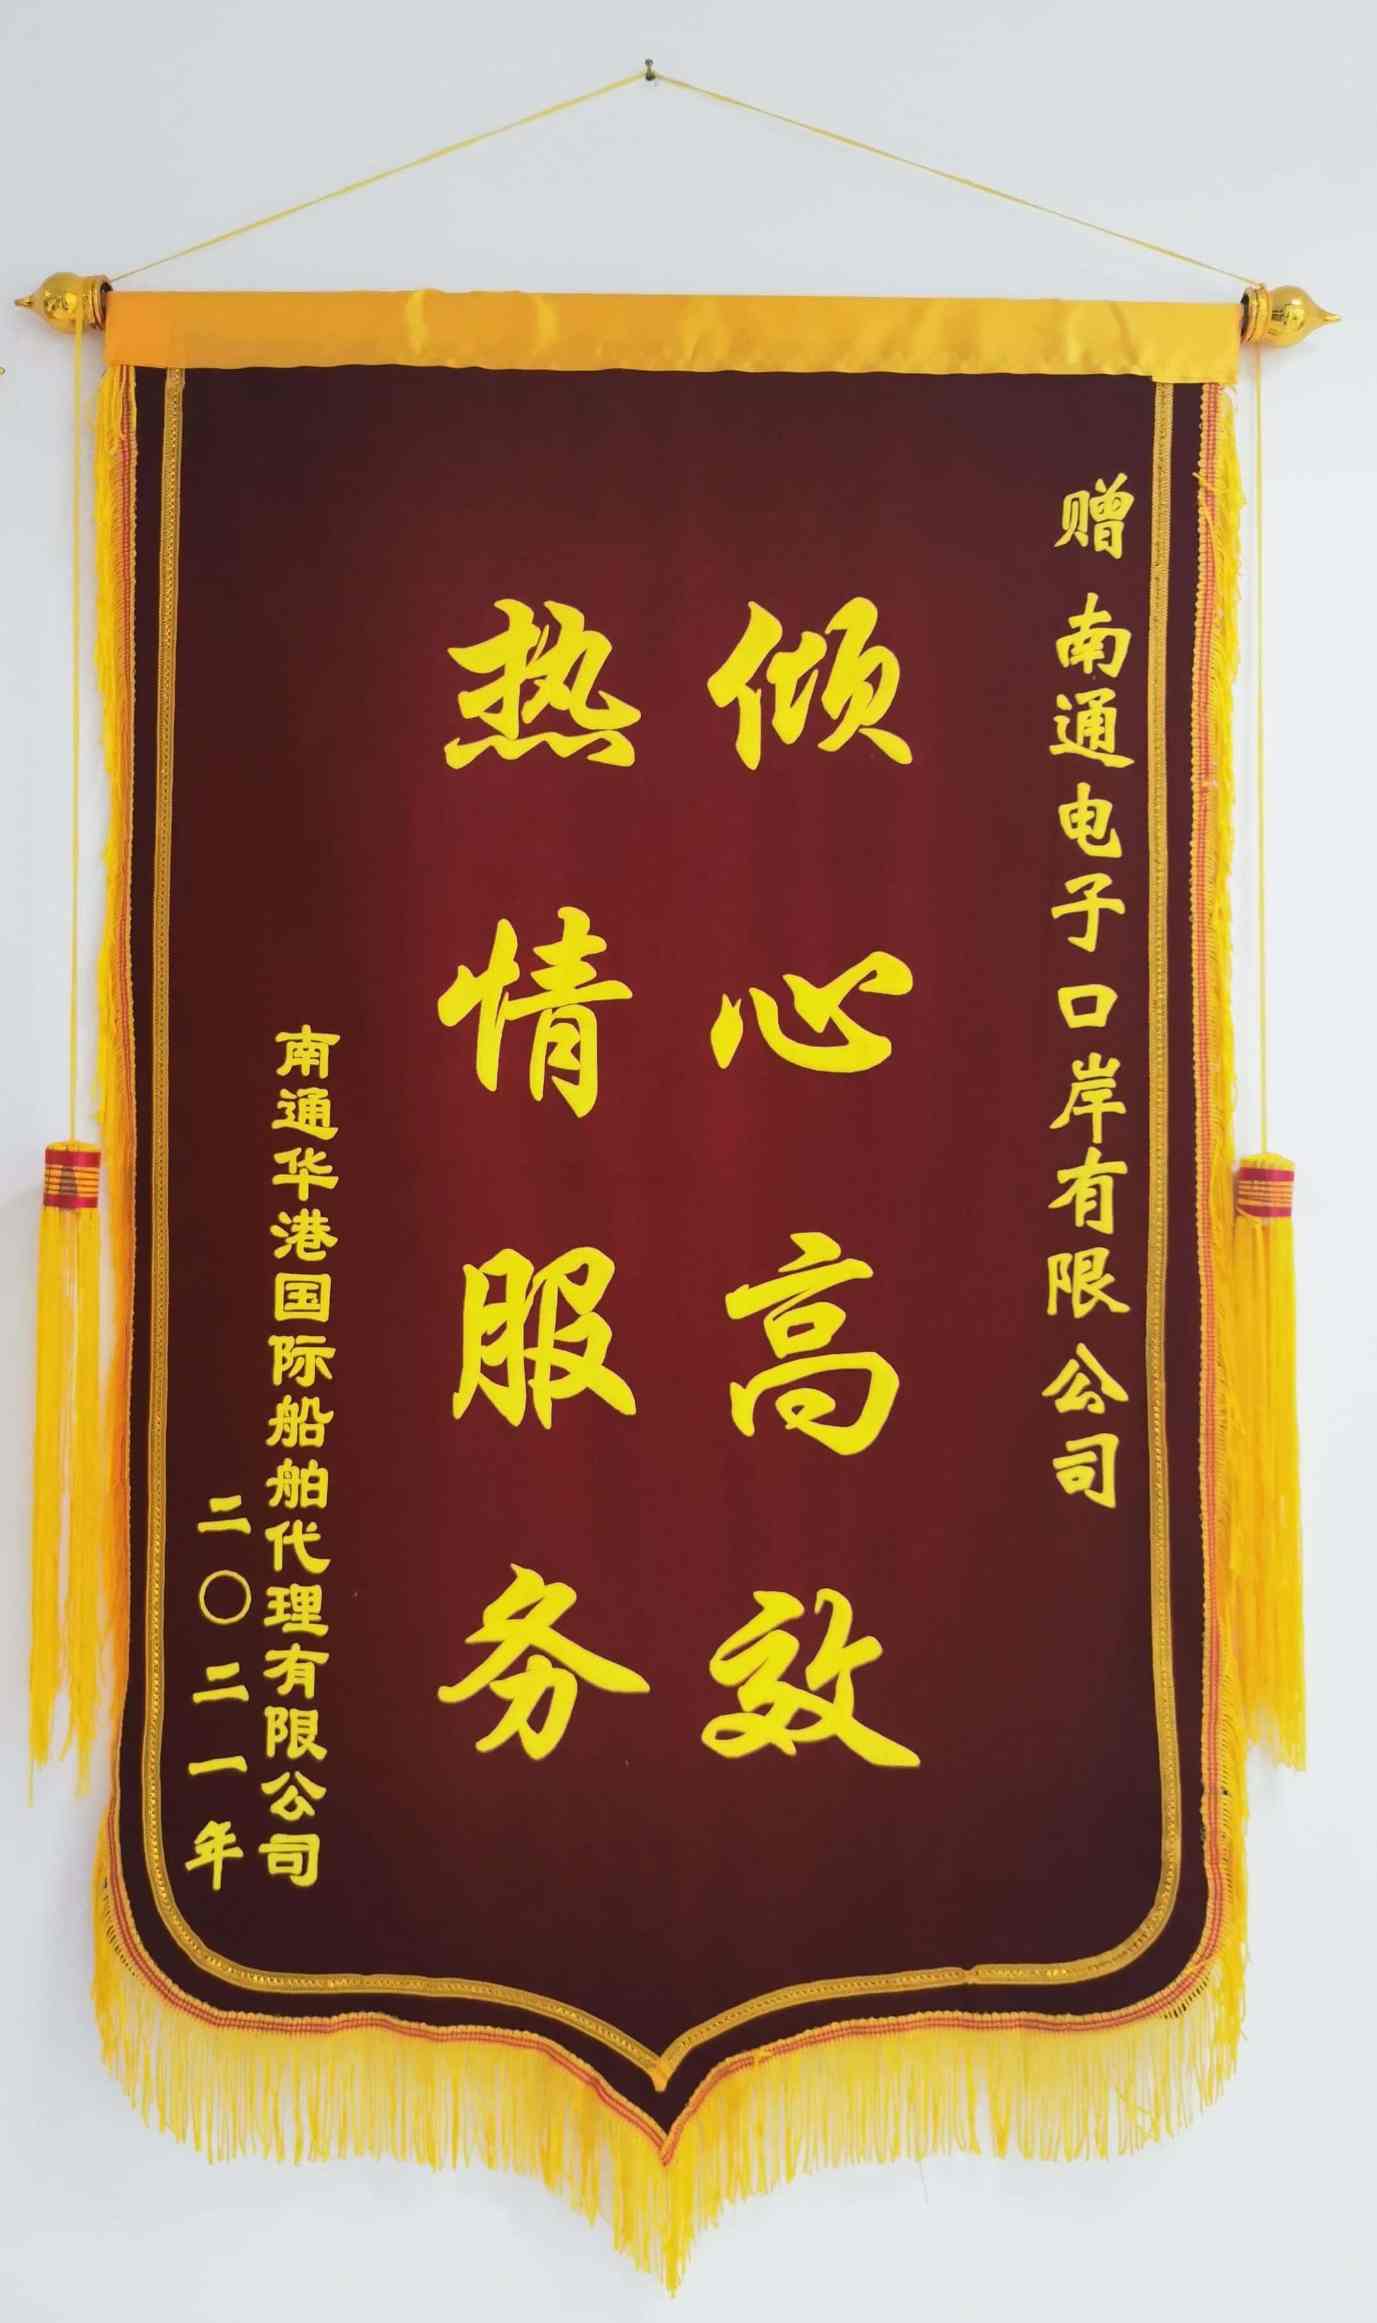 赠 南通电子口岸有限公司
倾心高效
热情服务
南通华港国际船舶代理有限公司
二〇二一年